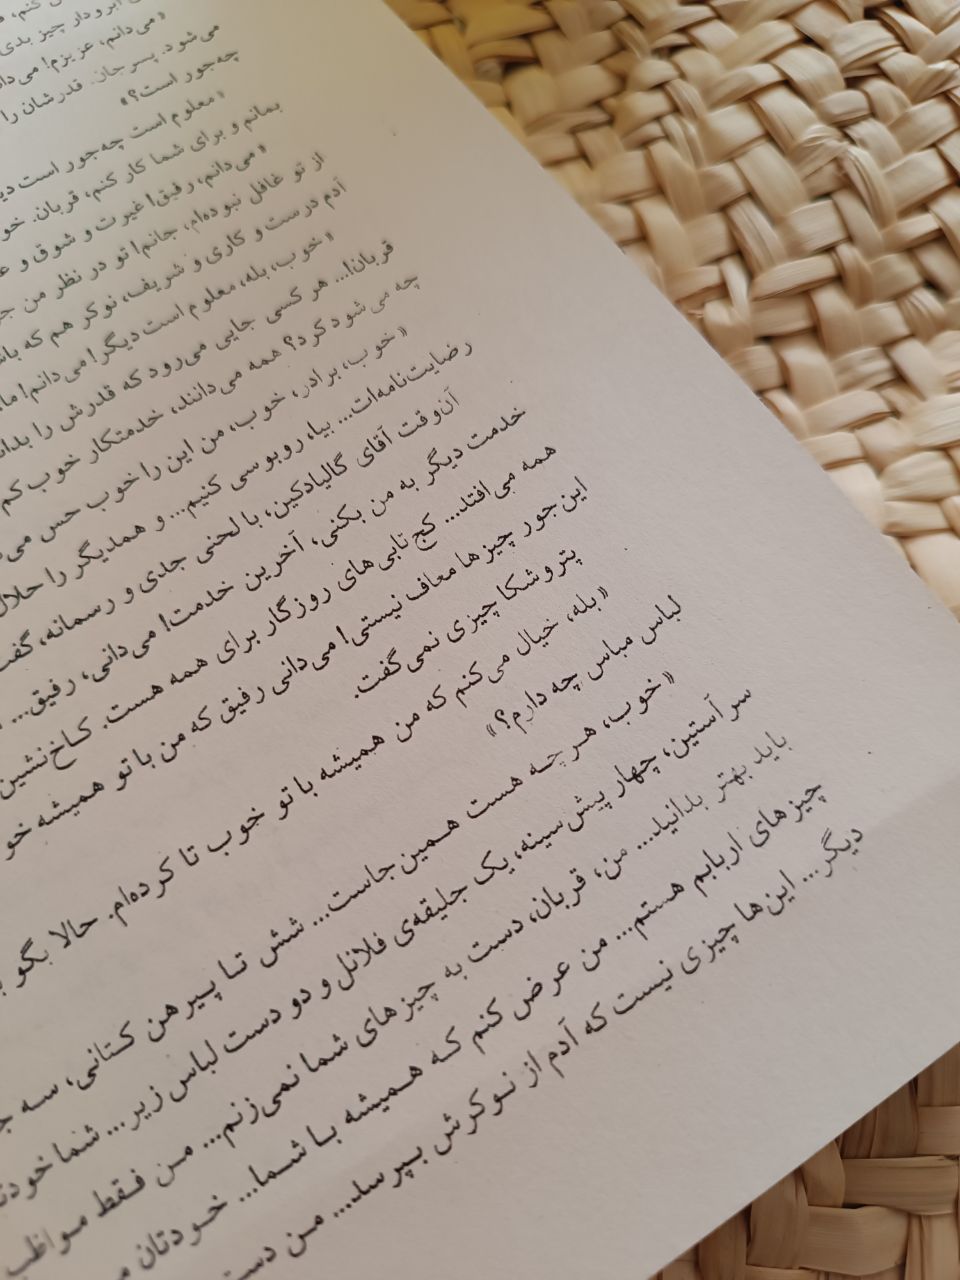 کنم،
آبرودار چیز بدی
«می‌دانم، عزیزم! می‌دا
می‌شود. پسرجان. قدرشان را
چه‌جور است؟»
«معلوم است چه‌جور است دی
بمانم و برای شما کار کنم، قربان. خو
«می‌دانم، رفیق! غیرت و شوق و ع
از تو غافل نبوده‌ام، جانم! تو در نظر من ج
آدم درست و کاری و شریف، نوکر هم که با
«خوب، بله، معلوم است دیگر! می‌دانم! ما،
قربان!... هر کسی جایی می‌رود که قدرش را بدان
چه می‌شود کرد؟ همه می‌دانند، خدمتکار خوب کم
«خوب، برادر، خوب، من این را خوب حس می‌
رضایت‌نامه‌ات... بیا، روبوسی کنیم... و همدیگر را حلال
آن‌وقت آقای گالیادکین، با لحنی جدی و رسمانه، گفت
خدمت دیگر به من بکنی، آخرین خدمت! می‌دانی، رفیق...
همه می‌افتد... کج‌تابی‌های روزگار برای همه هست. کاخ‌نشین
این جور چیزها معاف نیستی! می‌دانی رفیق که من با تو همیشه خو
پتروشکا چیزی نمی‌گفت.
«بله، خیال می‌کنم که من همیشه با تو خوب تا کرده‌ام. حالا بگو ب
لباس مباس چه دارم؟»
«خوب، هرچه هست همین‌جاست... شش تا پیرهن کتانی، سه ج
سرآستین، چهار پیش‌سینه، یک جلیقه‌ی فلانل و دو دست لباس زیر... شما خودت
باید بهتر بدانید... من، قربان، دست به چیزهای شما نمی‌زنم... من فقط مواظب
چیزهای اربابم هستم... من عرض کنم که همیشه با شما... خودتان م
دیگر... این‌ها چیزی نیست که آدم از نوکرش بپرسد... من دست